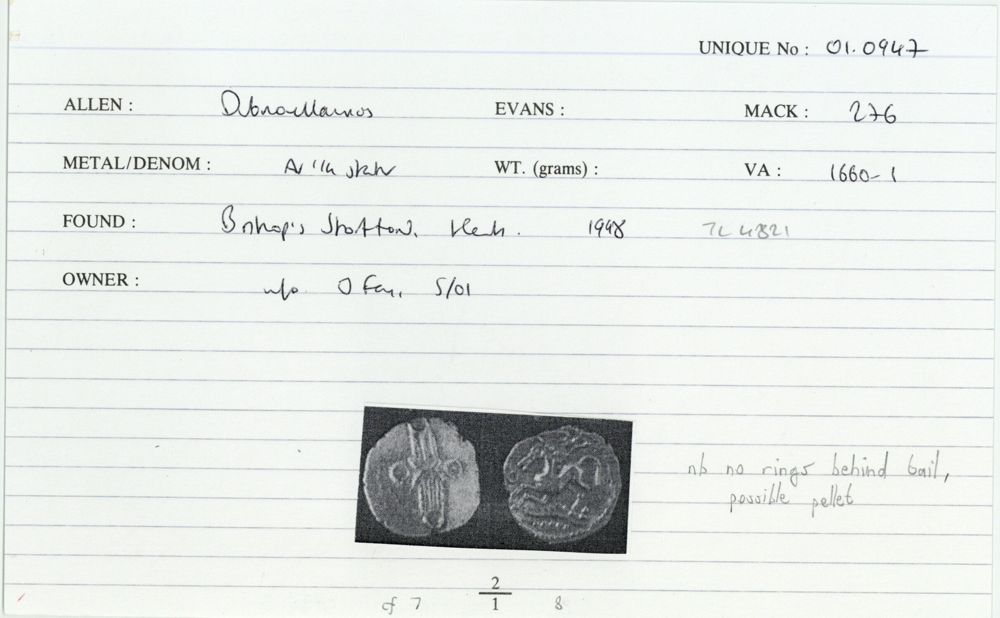 UNIQUE No : 01.0947
ALLEN : Dubnovellaunos EVANS : MACK : 276
METAL/DENOM : AV 1/4 stater WT. (grams) : VA : 1660-1
FOUND : Bishop's Stortford, Herts. 1998 TL 4821
OWNER : 5/01
nb no rings behind tail,
possible pellet
2
cf 7 1 8